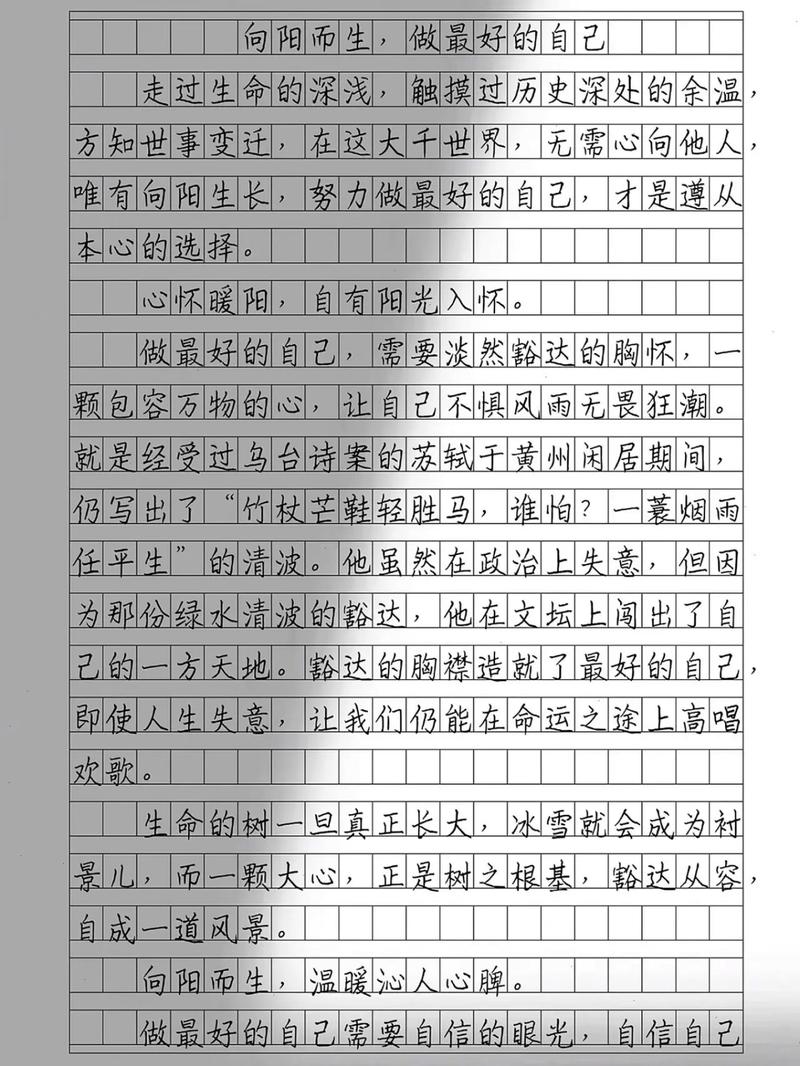 向阳而生，做最好的自己
走过生命的深浅，触摸过历史深处的余温，
方知世事变迁，在这大千世界，无需心向他人，
唯有向阳生长，努力做最好的自己，才是遵从
本心的选择。
心怀暖阳，自有阳光入怀。
做最好的自己，需要淡然豁达的胸怀，一
颗包容万物的心，让自己不惧风雨无畏狂潮。
就是经受过乌台诗案的苏轼于黄州闲居期间，
仍写出了“竹杖芒鞋轻胜马，谁怕？一蓑烟雨
任平生”的清波。他虽然在政治上失意，但因
为那份绿水清波的豁达，他在文坛上闯出了自
己的一方天地。豁达的胸襟造就了最好的自己，
即使人生失意，让我们仍能在命运之途上高唱
欢歌。
生命的树一旦真正长大，冰雪就会成为衬
景儿，而一颗大心，正是树之根基，豁达从容，
自成一道风景。
向阳而生，温暖沁人心脾。
做最好的自己需要自信的眼光，自信自己